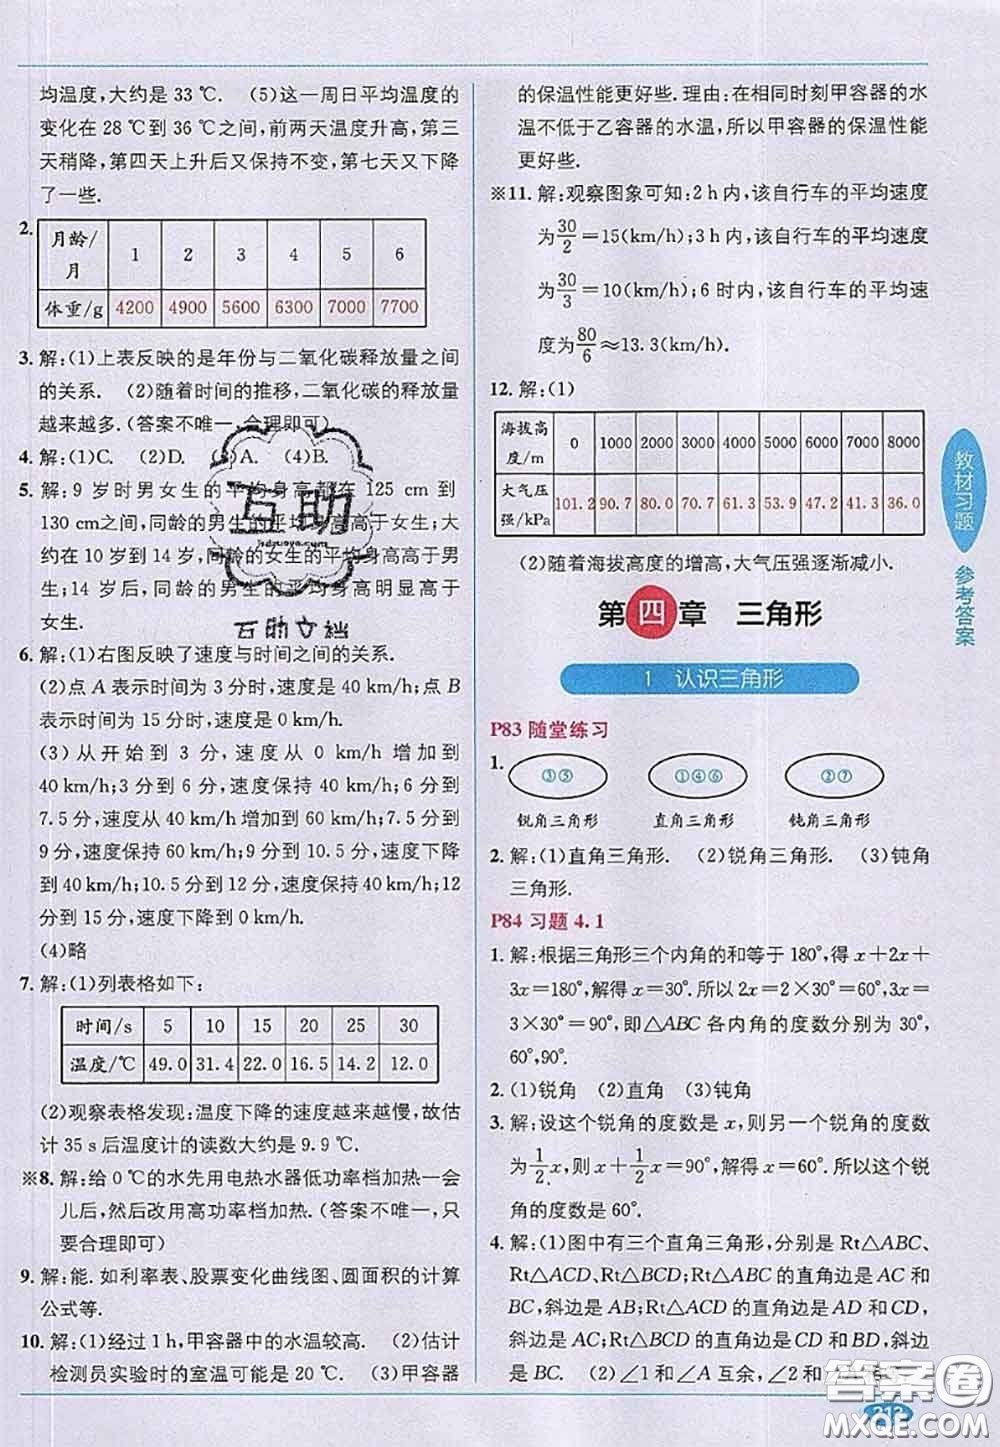 均温度,大约是 33 ℃. (5)这一周日平均温度的
变化在 28 ℃到 36 ℃之间,前两天温度升高,第三
天稍降,第四天上升后又保持不变,第七天又下降
了一些.
2.
月龄/月 1 2 3 4 5 6
体重/g 4200 4900 5600 6300 7000 7700
3. 解:(1)上表反映的是年份与二氧化碳释放量之间
的关系. (2)随着时间的推移,二氧化碳的释放量
越来越多.(答案不唯一,合理即可)
4. 解:(1)C. (2)D. (3)A. (4)B.
5. 解:9 岁时男女生的平均身高都在 125 cm 到
130 cm之间,同龄的男生的平均身高高于女生;大
约在 10 岁到 14 岁,同龄的女生的平均身高高于男
生;14 岁后,同龄的男生的平均身高明显高于
女生.
6. 解:(1)右图反映了速度与时间之间的关系.
(2)点 A 表示时间为 3 分时,速度是 40 km/h;点 B
表示时间为 15 分时,速度是 0 km/h.
(3)从开始到 3 分,速度从 0 km/h 增加到
40 km/h;3 分到 6 分,速度保持 40 km/h;6 分到
7.5 分,速度从 40 km/h 增加到 60 km/h;7.5 分到
9 分,速度保持 60 km/h;9 分到 10.5 分,速度下降
到 40 km/h;10.5 分到 12 分,速度保持 40 km/h;12
分到 15 分,速度下降到 0 km/h.
(4)略
7. 解:(1)列表格如下:
时间/s 5 10 15 20 25 30
温度/℃ 49.0 31.4 22.0 16.5 14.2 12.0
(2)观察表格发现:温度下降的速度越来越慢,故估
计 35 s 后温度计的读数大约是 9.9 ℃.
※8. 解:给 0 ℃的水先用电热水器低功率档加热一会
儿后,然后改用高功率档加热.(答案不唯一,只
要合理即可)
9. 解:能. 如利率表、股票变化曲线图、圆面积的计算
公式等.
10. 解:(1)经过 1 h,甲容器中的水温较高. (2)估计
检测员实验时的室温可能是 20 ℃. (3)甲容器
的保温性能更好些. 理由:在相同时刻甲容器的水
温不低于乙容器的水温,所以甲容器的保温性能
更好些.
※11. 解:观察图象可知:2 h 内,该自行车的平均速度
为30/2=15(km/h);3 h 内,该自行车的平均速度
为30/3=10(km/h);6 时内,该自行车的平均速
度为80/6≈13.3(km/h).
12. 解:(1)
海拔高度/m 0 1000 2000 3000 4000 5000 6000 7000 8000
大气压强/kPa 101.2 90.7 80.0 70.7 61.3 53.9 47.2 41.3 36.0
(2)随着海拔高度的增高,大气压强逐渐减小.
第四章 三角形
1 认识三角形
P83 随堂练习
1. ③⑤ ①④⑥ ②⑦
锐角三角形 直角三角形 钝角三角形
2. 解:(1)直角三角形. (2)锐角三角形. (3)钝角
三角形.
P84 习题 4.1
1. 解:根据三角形三个内角的和等于 180°,得 x+2x+
3x=180°,解得 x=30°. 所以 2x=2×30°=60°,3x=
3×30°=90°,即△ABC 各内角的度数分别为 30°,
60°,90°.
2. (1)锐角 (2)直角 (3)钝角
3. 解:设这个锐角的度数是 x,则另一个锐角的度数
为1/2x,则 x+1/2x=90°,解得 x=60°. 所以这个锐
角的度数是 60°.
4. 解:(1)图中有三个直角三角形,分别是 Rt△ABC、
Rt△ACD、Rt△BCD;Rt△ABC 的直角边是 AC 和
BC,斜边是 AB;Rt△ACD 的直角边是 AD 和 CD,
斜边是 AC;Rt△BCD 的直角边是 CD 和 BD,斜边
是 BC. (2)∠1 和∠A 互余,∠2
教材习题 参考答案
213
互助
互助文档
答案圈
MXQE.COM